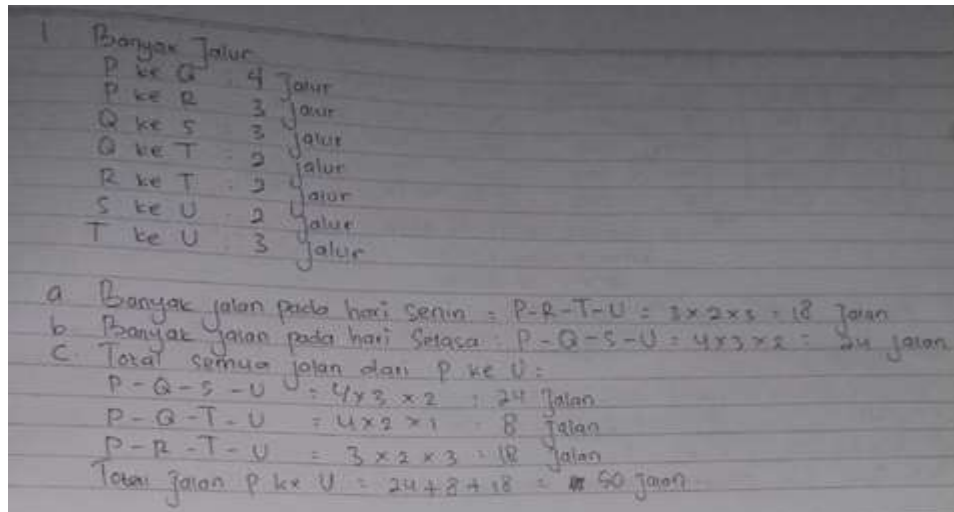 1 Banyak Jalur
P ke Q : 4 Jalur
P ke R 3 jalur
Q ke S 3 jalur
Q ke T : 2 jalur
R ke T : 2 jalur
S ke U : 2 jalur
T ke U : 3 jalur
a Banyak jalan pada hari senin = P-R-T-U = 3 x 2 x 3 = 18 Jalan
b. Banyak jalan pada hari Selasa : P-Q-S-U = 4x3x2 = 24 jalan
C. Total semua jalan dari P ke U :
P-Q-S-U = 4x3 x2 = 24 Jalan
P-Q-T-U = 4x2x1 = 8 Jalan
P-R-T-U = 3 x 2 x 3 = 18 Jalan
Total Jalan P ke U = 24+8+18 = 50 Jalan